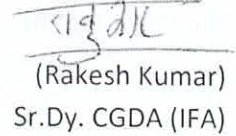 (Rakesh Kumar)
Sr.Dy. CGDA (IFA)